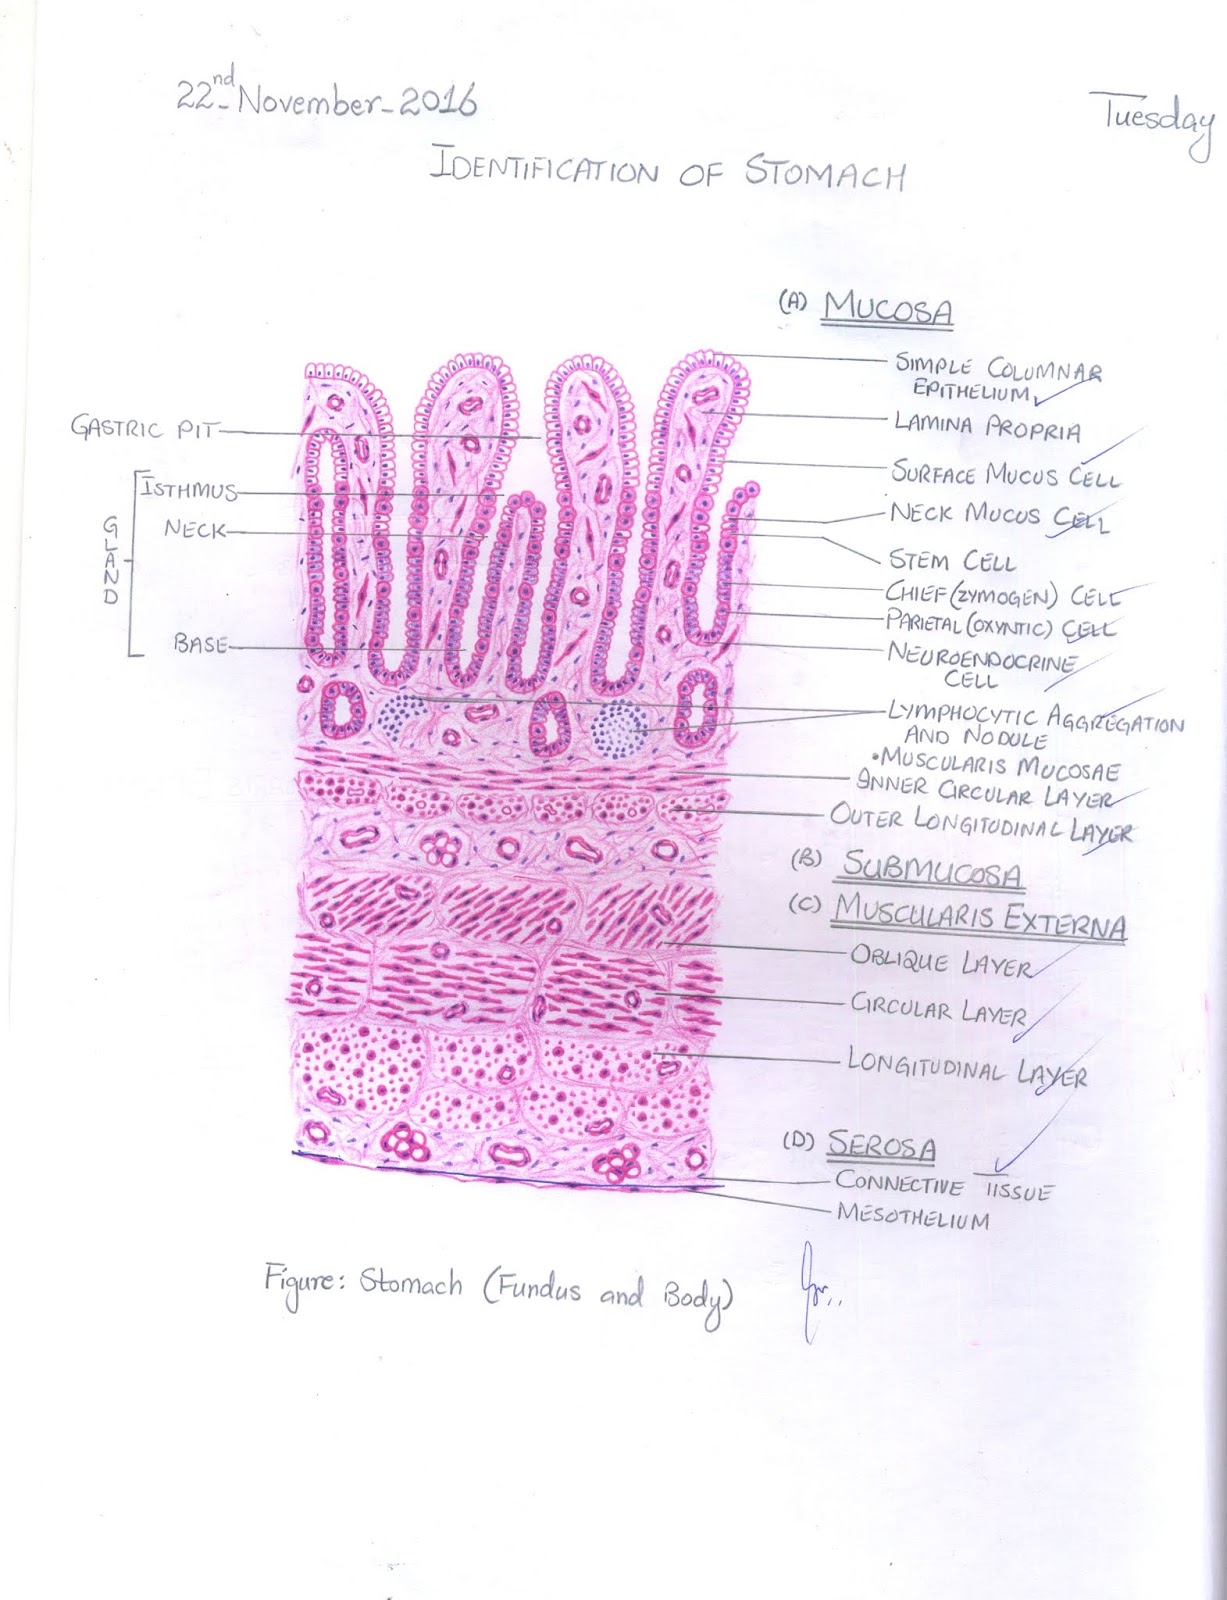 22nd_November_2016
Tuesday
IDENTIFICATION OF STOMACH
(A) MUCOSA
SIMPLE COLUMNAR
EPITHELIUM
LAMINA PROPRIA
GASTRIC PIT
SURFACE MUCUS CELL
ISTHMUS
NECK MUCUS CELL
NECK
GLAND
STEM CELL
CHIEF (ZYMOGEN) CELL
PARIETAL (OXYNTIC) CELL
BASE
NEUROENDOCRINE
CELL
LYMPHOCYTIC AGGREGATION
AND NODULE
•MUSCULARIS MUCOSAE
INNER CIRCULAR LAYER
OUTER LONGITUDINAL LAYER
(B) SUBMUCOSA
(C) MUSCULARIS EXTERNA
OBLIQUE LAYER
CIRCULAR LAYER
LONGITUDINAL LAYER
(D) SEROSA
CONNECTIVE TISSUE
MESOTHELIUM
Figure: Stomach (Fundus and Body)